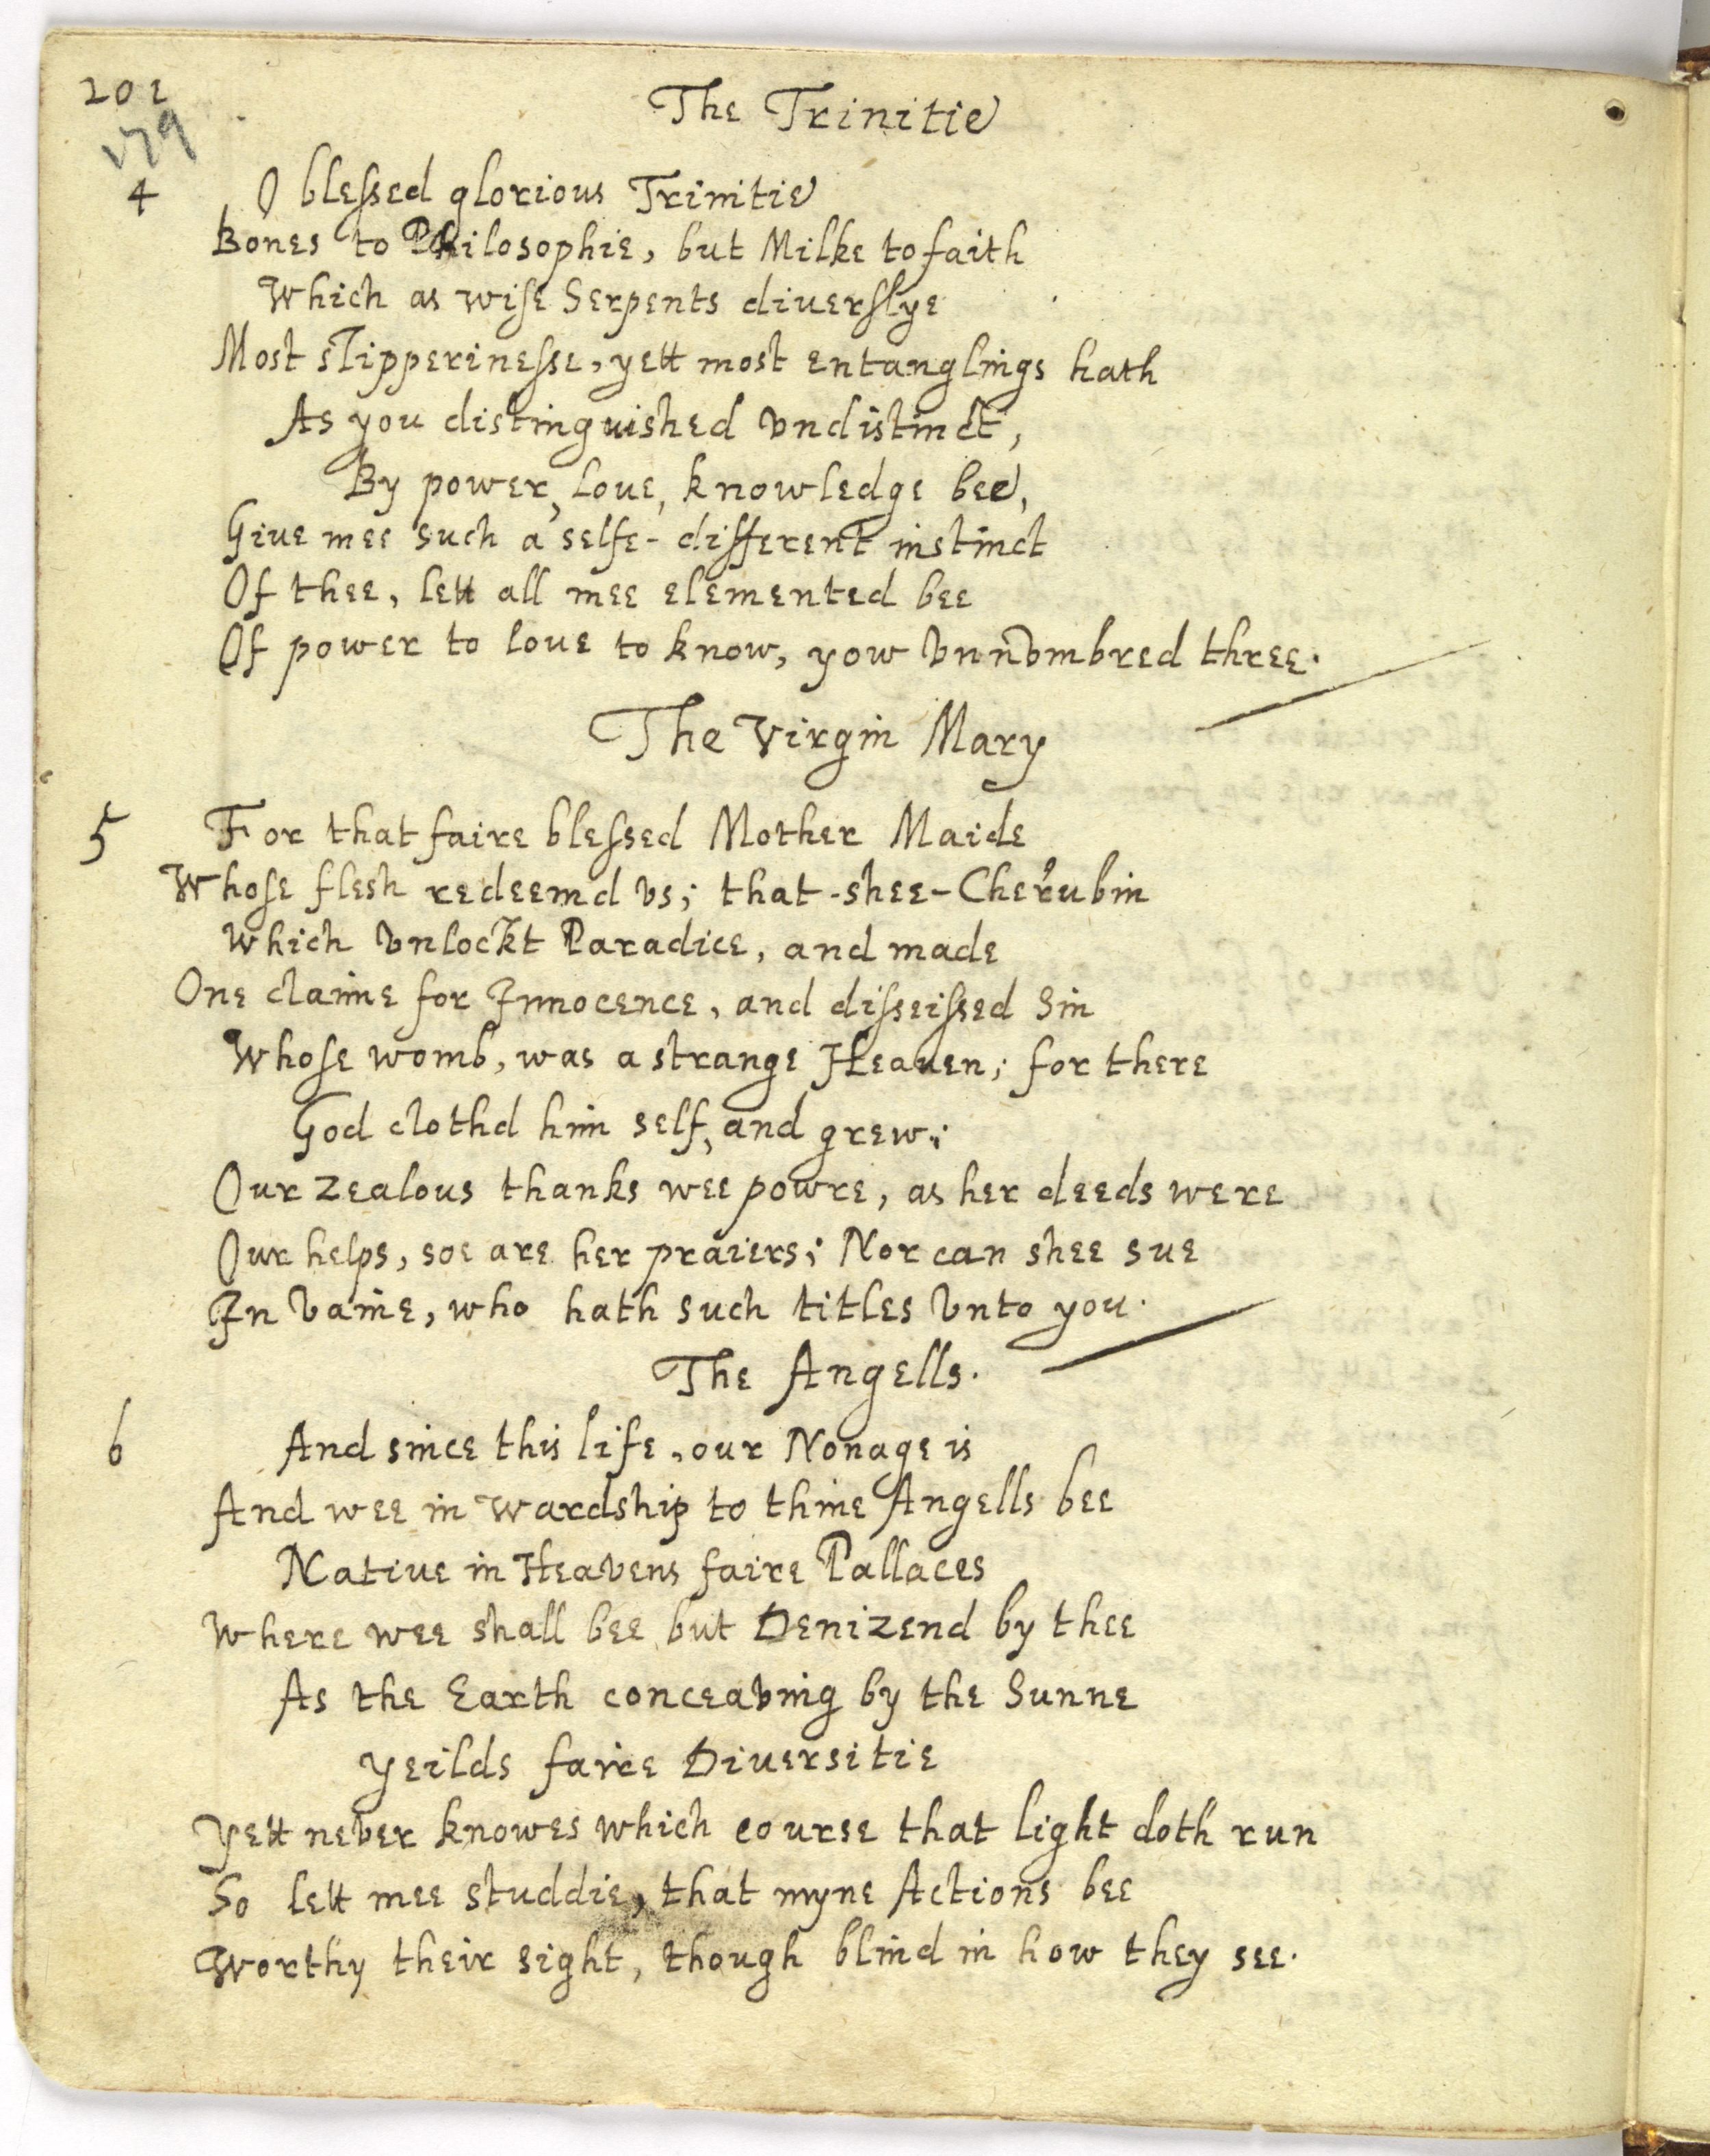 202
179
The Trinitie
4 O blessed glorious Trinitie
Bones to Philosophie, but Milke to faith
Which as wise Serpents diverslye
Most slipperinesse, yett most entanglings hath
As you distinguished vndistinct,
By power, loue, knowledge bee,
Giue mee such a selfe-different instinct
Of thee, lett all mee elemented bee
Of power to loue to know, yow vnnvmbred three.
The Virgin Mary
5 For that faire blessed Mother Maide
Whose flesh redeemd vs; that-shee-Cherubin
Which vnlockt Paradice, and made
One claime for Innocence, and disseissed Sin
Whose womb, was a strange Heauen; for there
God clothd him self, and grew;
Our zealous thanks wee powre, as her deeds were
Our helps, soe are her praiers; Nor can shee sue
In vaine, who hath such titles vnto you.
The Angells.
6 And since this life, our Nonage is
And wee in Wardship to thine Angells bee
Natiue in Heavens faire Pallaces
Where wee shall bee but Denizend by thee
As the Earth conceaving by the Sunne
Yeilds faire Diuersitie
Yett never knowes which course that light doth run
So lett mee studdie, that myne Actions bee
Worthy their sight, though blind in how they see.